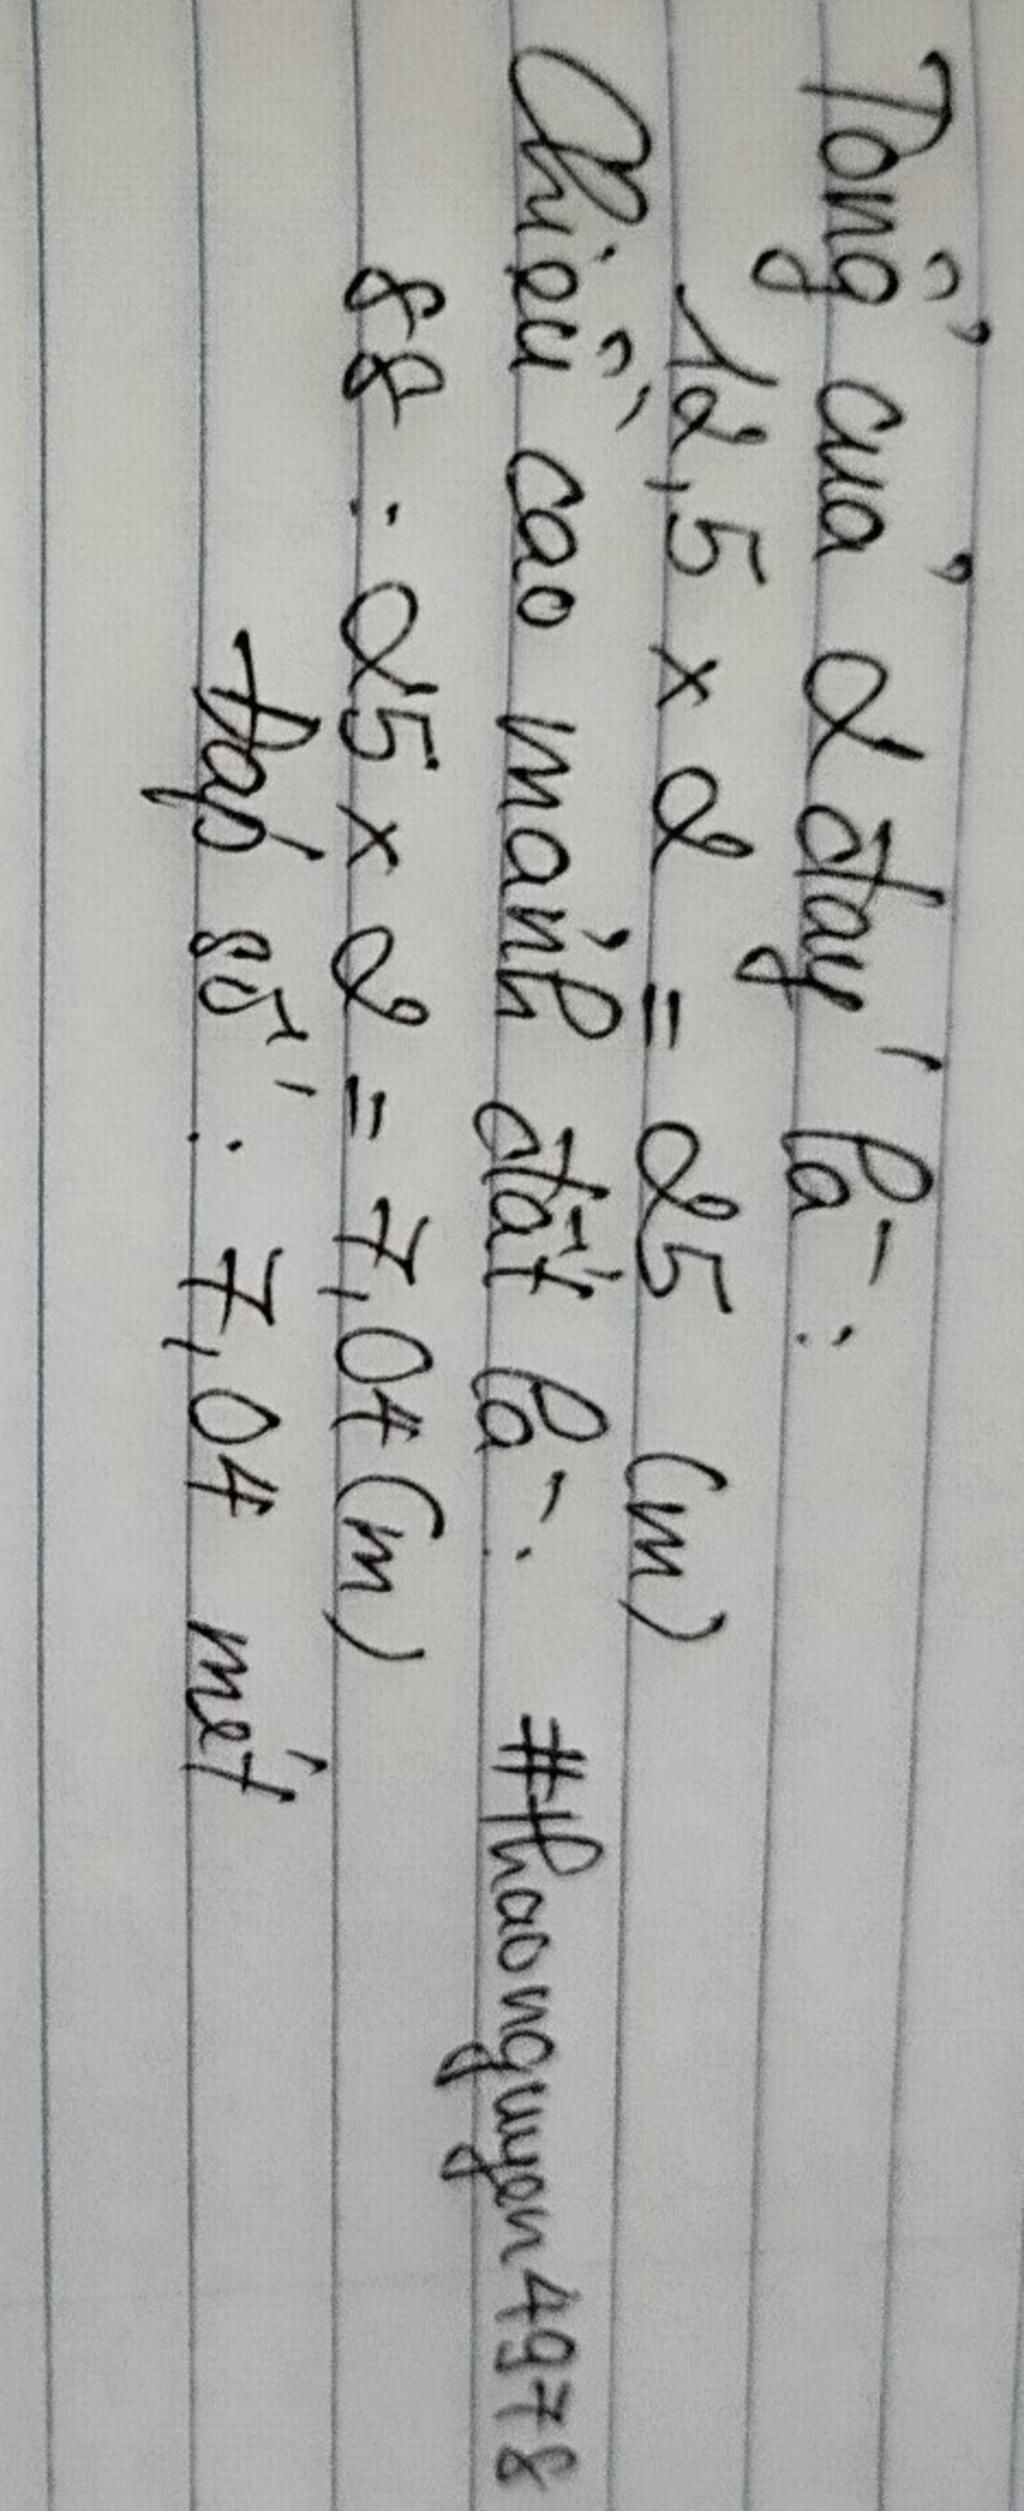 Tổng của 2 đáy là:
12,5 x 2 = 25 (m)
Chiều cao mảnh đất là:
88 : 25 x 2 = 7,04 (m)
Đáp số: 7,04 mét
#thaonguyen4978